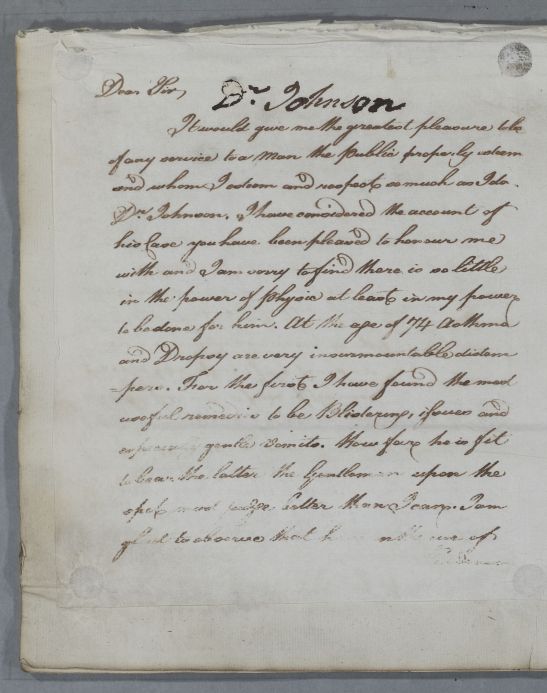 Dear Sir,
Dr. Johnson
It would give me the greatest pleasure to be
of any service to a Man the Public properly esteem
and whom I esteem and respect so much as I do.
Dr. Johnson. I have considered the account of
his Case you have been pleased to honour me
with and I am sorry to find there is so little
in the power of Physic at least in my power
to be done for him. At the age of 74 Asthma
and Dropsy are very insurmountable distem
=pers. For the first I have found the most
useful remedies to be Blistering, issues and
especially gentle Vomits. How far he is fit
to bear the latter the Gentlemen upon the
spot must judge better than I can. I am
glad to observe that he is not